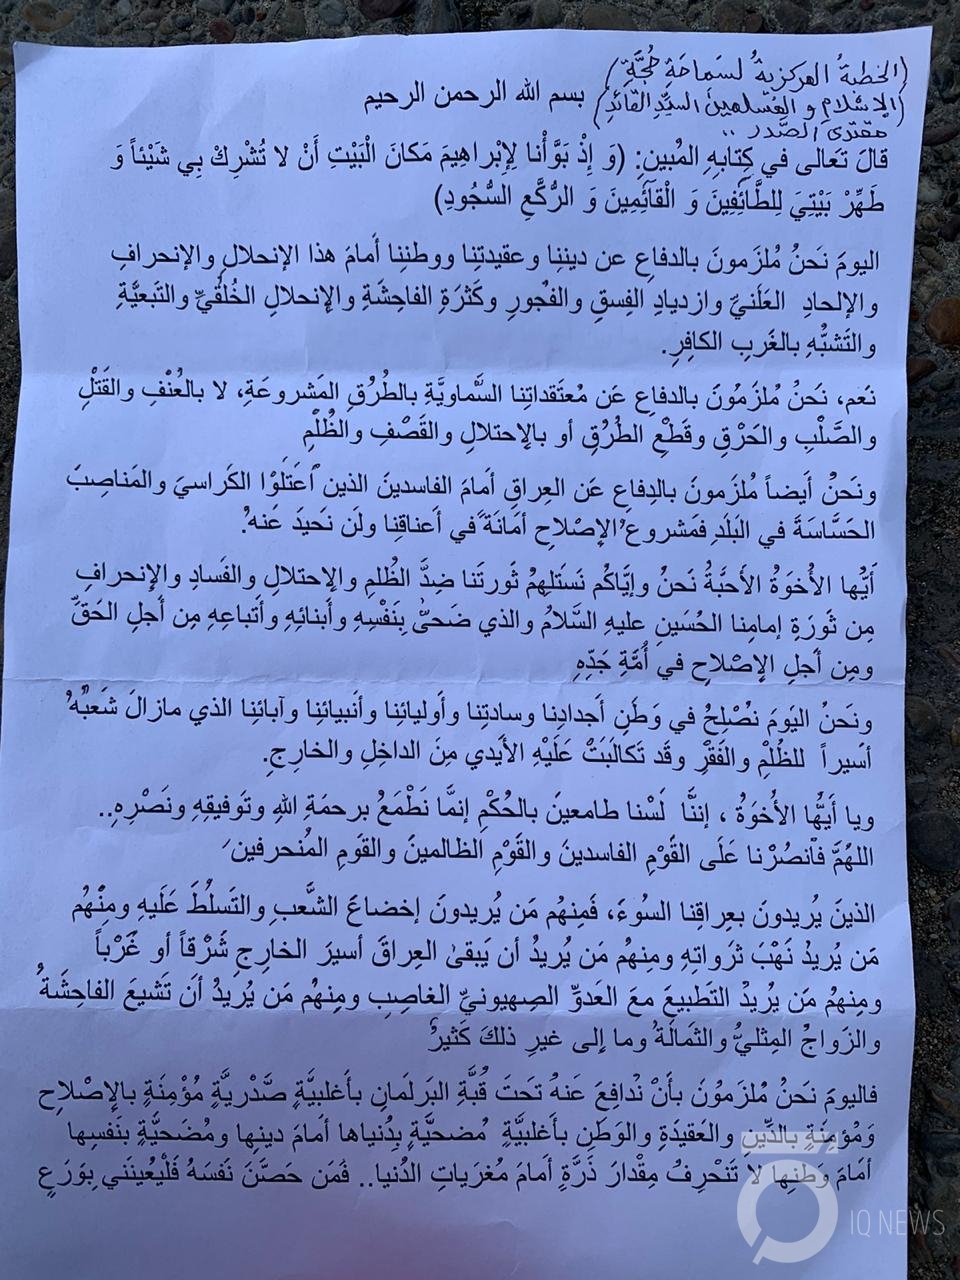 (الخطبة المركزية لسماحة حُجَّة
الإسلام و المسلمين السيِّد القائد)
مقتدى الصَّدر ،،
بسم الله الرحمن الرحيم
قالَ تَعالى في كِتابهِ المُبين: (وَ إِذْ بَوَّأْنا لِإِبْراهِيمَ مَكانَ الْبَيْتِ أَنْ لا تُشْرِكْ بِي شَيْئاً وَ
طَهِّرْ بَيْتِيَ لِلطَّائِفِينَ وَ الْقائِمِينَ وَ الرُّكَّعِ السُّجُودِ)
اليومَ نَحنُ مُلزَمونَ بالدفاعِ عن ديننِا وعقيدتِنا ووطنِنا أَمامَ هذا الإنحلالِ والإنحرافِ
والإلحادِ العَلَنيِّ وازديادِ الفِسقِ والفُجورِ وكَثرَةِ الفاحِشَةِ والإنحلالِ الخُلُقيِّ والتَبعيَّةِ
والتَشبُّهِ بالغَربِ الكافِرِ.
نَعم، نَحنُ مُلزَمُونَ بالدفاعِ عَن مُعتَقداتِنا السَّماويَّةِ بالطُرُقِ المَشروعَةِ، لا بالعُنْفِ والقَتْلِ
والصَّلْبِ والحَرْقِ وقَطْعِ الطُرُقِ أو بالإحتلالِ والقَصْفِ والظُلْمِ
ونَحنُ أَيضاً مُلزَمونَ بالدِفاعِ عَن العِراقِ أَمامَ الفاسدينَ الذين ٱعتَلَوْا الكَراسيَ والمَناصِبَ
الحَسَّاسَةَ في البَلَدِ فمَشروعُ الإصْلاحِ أمَانَةً في أعناقِنا ولَن نَحيدَ عَنهُ
أَيُّها الأُخوَةُ الأَحبَّةُ نَحنُ وإيَّاكُم نَستَلهِمُ ثَورتَنا ضِدَّ الظُلمِ والإحتلالِ والفَسادِ والإنحرافِ
مِن ثَورَةِ إمامِنا الحُسَينِ عليهِ السَّلامُ والذي ضَحىّٰ بِنَفْسِهِ وأبنائِهِ وأَتباعِهِ مِن أَجلِ الحَقِّ
ومِن أَجلِ الإصْلاحِ في أُمَّةِ جَدِّهِ
ونَحنُ اليَومَ نُصْلِحُ في وَطَنِ أَجدادِنا وسادتِنا وأَوليائِنا وأَنبيائِنا وآبائِنا الذي مازالَ شَعبُهُ
أَسيراً للظُلْمِ والفَقْرِ وقَد تَكالَبَتْ عَلَيْهِ الأَيدي مِنَ الداخِلِ والخارِجِ.
ويا أَيُّها الأُخوَةُ ، إنَنَّا لَسْنا طامعينَ بالحُكْمِ إنمَّا نَطْمَعُ برحمَةِ اللهِ وتَوفيقِهِ ونَصْرِهِ..
اللهُمَّ فٱنصُرْنا عَلَى القَوْمِ الفاسدينَ والقَوْمِ الظالمينَ والقَومِ المُنحرفينَ
الذينَ يُريدونَ بعِراقِنا السُوءَ، فَمِنهُم مَن يُريدونَ إخضاعَ الشَّعبِ والتَسلُّطَ عَلَيهِ ومنْهُم
مَن يُريدُ نَهْبَ ثَرواتِهِ ومِنهُم مَن يُريدُ أن يَبقىٰ العِراقَ أَسيرَ الخارِجِ شَرْقاً أو غَرْباً
ومِنهُم مَن يُريدُ التَطبيعَ معَ العَدوِّ الصِهيونيِّ الغاصِبِ ومِنهُم مَن يُريدُ أن تَشيعَ الفاحِشَةُ
والزَواجُ المِثليُّ والثَمالَةُ وما إلى غيرِ ذلكَ كَثيرٌ
فاليومَ نَحنُ مُلزَمُونَ بأَنْ نُدافِعَ عَنهُ تَحتَ قُبَّةِ البَرلَمانِ بأَغلبيَّةٍ صَدْريةٍ مُؤْمِنَةٍ بالإصْلاحِ
وَمُؤمِنَةٍ بالدِّينِ والعَقيدَةِ والوَطَنِ بأَغلبيَّةٍ مُضحيَّةٍ بِدُنياها أمامَ دينِها ومُضحيَّةٍ بنَفسِها
أمامَ وَطنِها لا تَنْحرِفُ مِقْدارَ ذَرَّةٍ أَمامَ مُغرَياتِ الدُنيا.. فَمَن حَصَّنَ نَفسَهُ فَلْيُعينَني بِوَرَعٍ
IQ NEWS